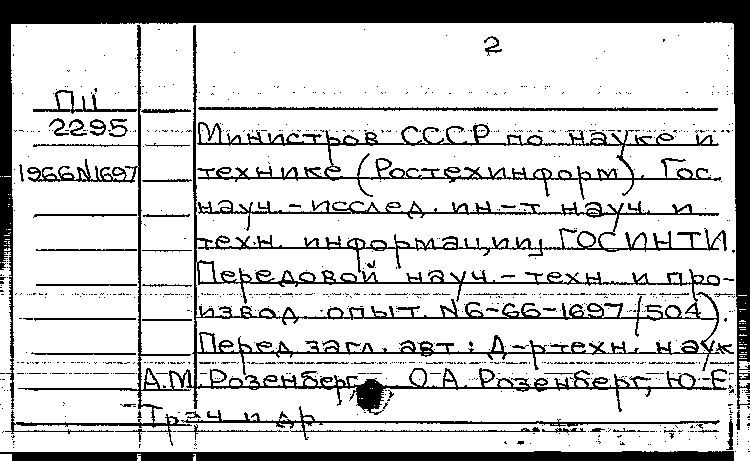 2
П11
2295
Министров СССР по науке и
1966N1697 технике (Ростехинформ). Гос.
науч.-исслед. ин-т науч. и
техн. информации, ГОСИНТИ.
Передовой науч.-техн. и про-
извод. опыт. N6-66-1697/504).
Перед загл. авт.: Д-р техн. наук
А.М. Розенберг, О.А. Розенберг, Ю.Е.
Трач и др.